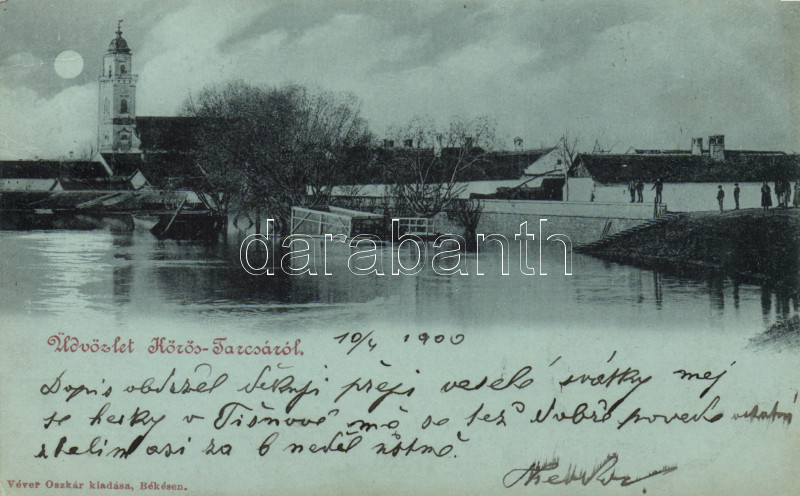 darabanth
Üdvözlet Körös-Tarcsáról.
10/4 1900
Dopis obdržel děkuji přeji veselé svátky měj
se hezky v Tišnově má se též dobře povede
asi za 6 neděl
Véver Oszkár kiadása, Békésen.